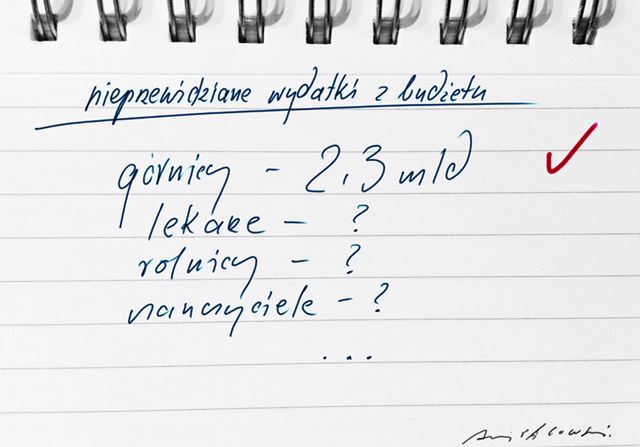 nieprzewidziane wydatki z budżetu
górnicy - 2,3 mld
lekarze - ?
rolnicy - ?
nauczyciele - ?
...